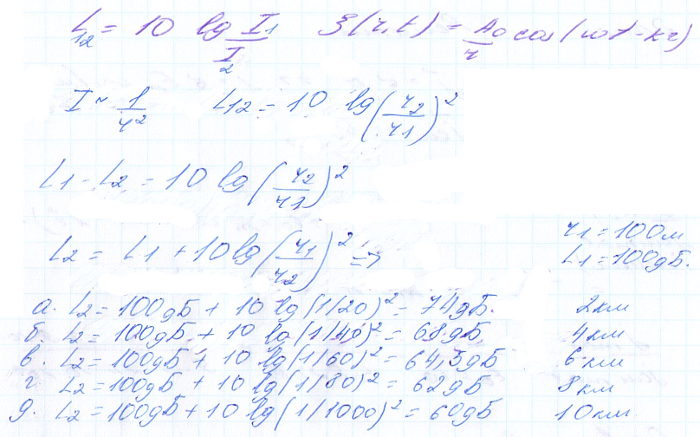 L₁₂ = 10 lg I₁/I₂ ξ(r,t) = A₀/r cos(ωt - kr)
I ~ 1/r² L₁₂ = 10 lg(r₂/r₁)²
L₁ - L₂ = 10 lg(r₂/r₁)²
r₁ = 100м
L₂ = L₁ + 10 lg(r₁/r₂)² ⇒ L₁ = 100дБ.
а. L₂ = 100дБ + 10 lg(1/20)² = 74дБ. 2км
б. L₂ = 100дБ + 10 lg(1/40)² = 68дБ. 4км
в. L₂ = 100дБ + 10 lg(1/60)² = 64,5дБ 6км
г. L₂ = 100дБ + 10 lg(1/80)² = 62дБ 8км
д. L₂ = 100дБ + 10 lg(1/1000)² = 60дБ 10км